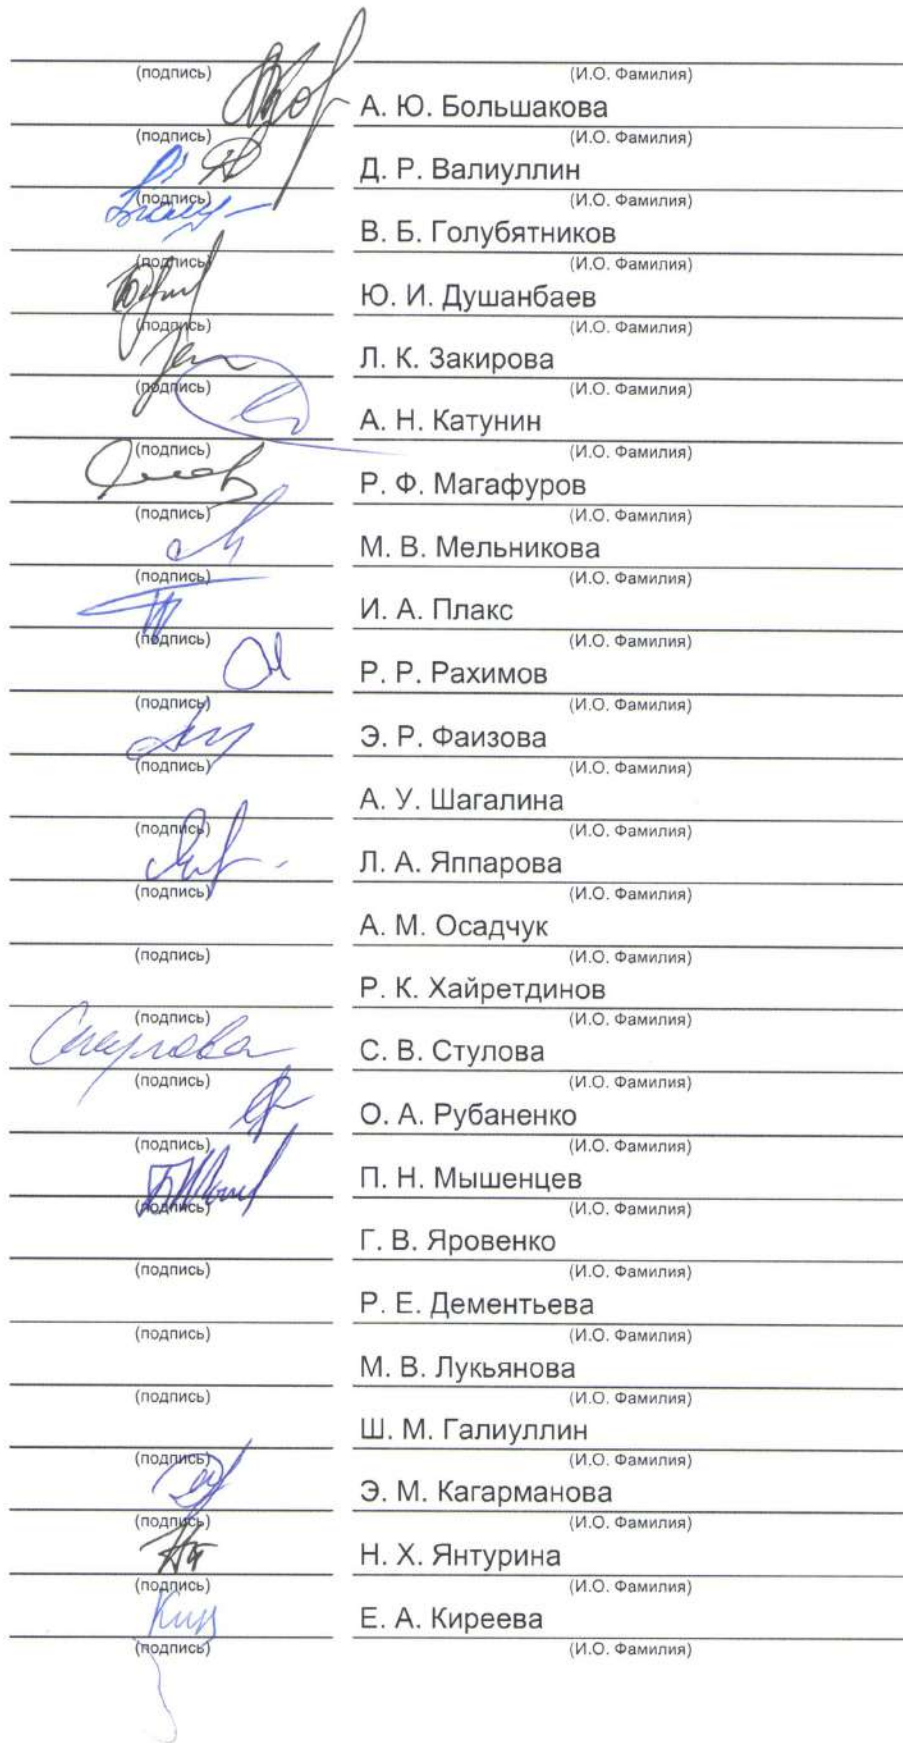 (подпись) (И.О. Фамилия)
А. Ю. Большакова
(подпись) (И.О. Фамилия)
Д. Р. Валиуллин
(подпись) (И.О. Фамилия)
В. Б. Голубятников
(подпись) (И.О. Фамилия)
Ю. И. Душанбаев
(подпись) (И.О. Фамилия)
Л. К. Закирова
(подпись) (И.О. Фамилия)
А. Н. Катунин
(подпись) (И.О. Фамилия)
Р. Ф. Магафуров
(подпись) (И.О. Фамилия)
М. В. Мельникова
(подпись) (И.О. Фамилия)
И. А. Плакс
(подпись) (И.О. Фамилия)
Р. Р. Рахимов
(подпись) (И.О. Фамилия)
Э. Р. Фаизова
(подпись) (И.О. Фамилия)
А. У. Шагалина
(подпись) (И.О. Фамилия)
Л. А. Яппарова
(подпись) (И.О. Фамилия)
А. М. Осадчук
(подпись) (И.О. Фамилия)
Р. К. Хайретдинов
(подпись) (И.О. Фамилия)
Стулова С. В. Стулова
(подпись) (И.О. Фамилия)
О. А. Рубаненко
(подпись) (И.О. Фамилия)
П. Н. Мышенцев
(подпись) (И.О. Фамилия)
Г. В. Яровенко
(подпись) (И.О. Фамилия)
Р. Е. Дементьева
(подпись) (И.О. Фамилия)
М. В. Лукьянова
(подпись) (И.О. Фамилия)
Ш. М. Галиуллин
(подпись) (И.О. Фамилия)
Э. М. Кагарманова
(подпись) (И.О. Фамилия)
Н. Х. Янтурина
(подпись) (И.О. Фамилия)
Е. А. Киреева
(подпись) (И.О. Фамилия)